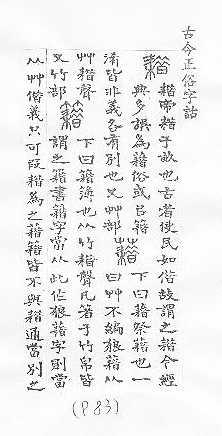 古今正俗字詁
耤 耤帝耤千畝也古者使民如借故謂之耤今經
典多誤為籍俗或㠯籍
淆皆非義各有別也又艸部 藉 曰艸不編狼藉从
下曰藉祭藉也一
艸耤聲
下曰籍簿也从竹耤聲凡著于竹帛皆
又竹部 籍
謂之籍書籍字當从此作狼藉字則當
从艸借義只可段耤為之藉籍皆不與耤通當別之
(P83)